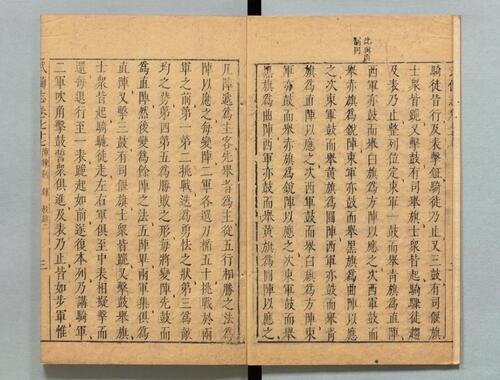 騎徒皆行及表擊鉦騎徒乃止又三鼓有司偃旗
士衆皆跪又擊鼓有司舉旗士衆皆起騎驟徒趨
及表乃止整列位定東軍一鼓而舉青旗爲直陣
西軍亦鼓而舉白旗爲方陣以應之次西軍鼓而
舉赤旗爲銳陣東軍亦鼓而舉黑旗爲曲陣以應
之次東軍鼓而舉黃旗爲圓陣西軍亦鼓而舉青
旗爲直陣以應之次西軍鼓而舉白旗爲方陣東
軍亦鼓而舉赤旗爲銳陣以應之次東軍鼓而舉
黑旗爲曲陣西軍亦鼓而舉黃旗爲圓陣以應之
凡陣遞爲主客先舉者爲主從五行相勝之法爲
陣以應之每變陣二軍各選刀楯五十挑戰於兩
軍之前第一第二挑戰迭爲勇怯之狀第三爲敵
均之勢第四第五爲勝敗之形每將變陣先鼓而
直陣然後變爲餘陣之法五陣畢兩軍集俱爲
直陣又擊三鼓有司偃旗士衆皆跪又擊鼓舉旗
士衆皆起騎驟徒走左右軍俱至中表相擬擊而
還每退行至一表跪起如前遂復本列乃講騎軍
二軍吹角擊鼓誓衆俱進及表乃止皆如步軍惟